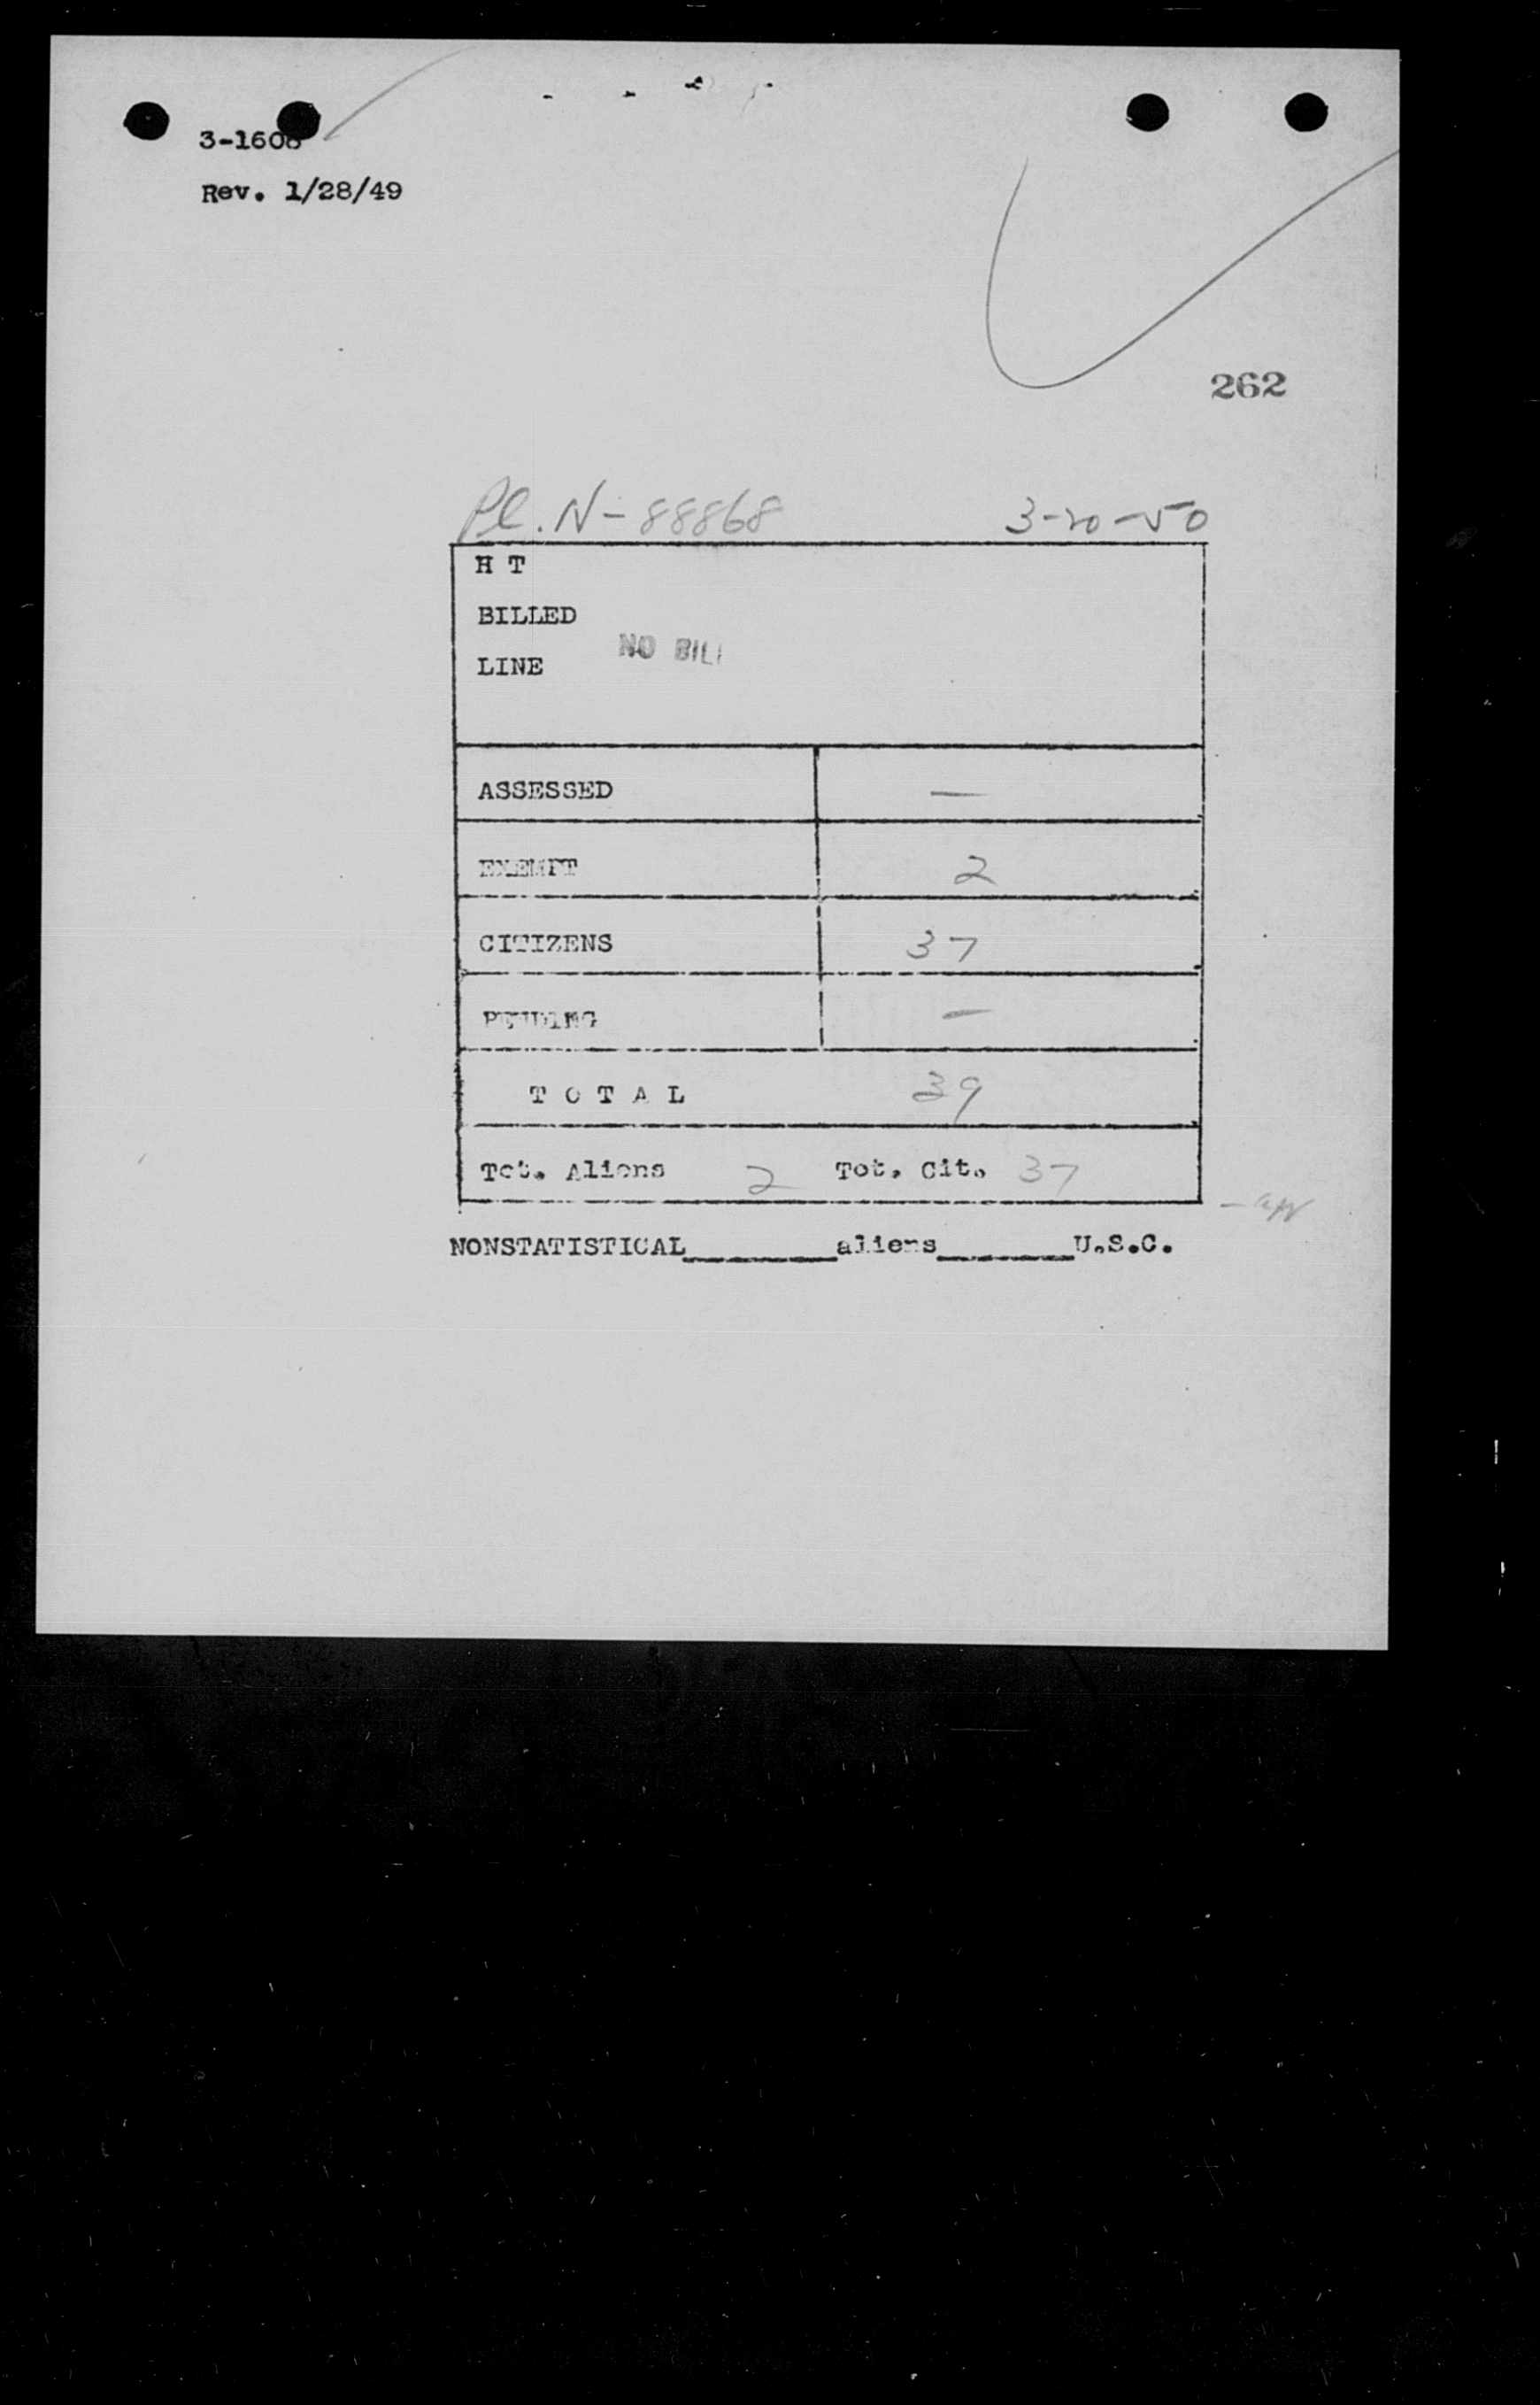 3-1608
Rev. 1/28/49
262
Pl. N-88868 3-20-50
H T
BILLED
NO BILL
LINE
ASSESSED —
EXEMPT 2
CITIZENS 37
PENDING —
T O T A L 39
Tot. Aliens 2 Tot. Cit. 37
NONSTATISTICAL________aliens_______U.S.C.